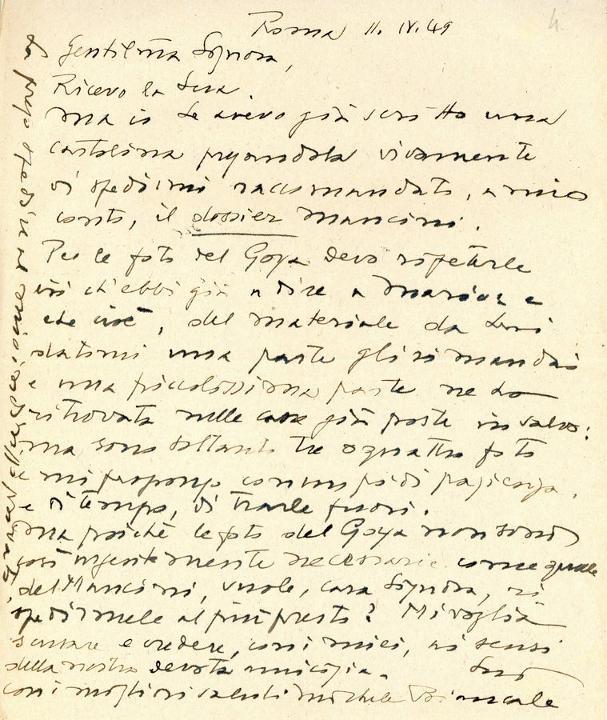 Roma 11. IV. 49
Gentilma Signora,
Ricevo la Sua
ma io Le avevo già scritto una
cartolina pregandola vivamente
di spedirmi raccomandato, a mio
conto, il dossier Mancini.
Per le foto del Goya devo ripeterle
ciò ch'ebbi già a dire a
che cioè, del materiale da Lei
datomi una parte gli rimandai
e una piccolissima parte ne ho
ritrovata nelle case già poste in salvo:
ma sono soltanto tre o quattro foto
e mi propongo con un po' di pazienza,
e di tempo, di trarle fuori.
Ma poichè le foto del Goya non sono
così urgentemente necessarie come quelle
del Mancini, vuole, cara Signora,
spedirmele al più presto? Mi voglia
scusare e credere, con i miei, ai sensi
della nostra devota amicizia.
con i migliori saluti Michele Biancale
La prego spedire